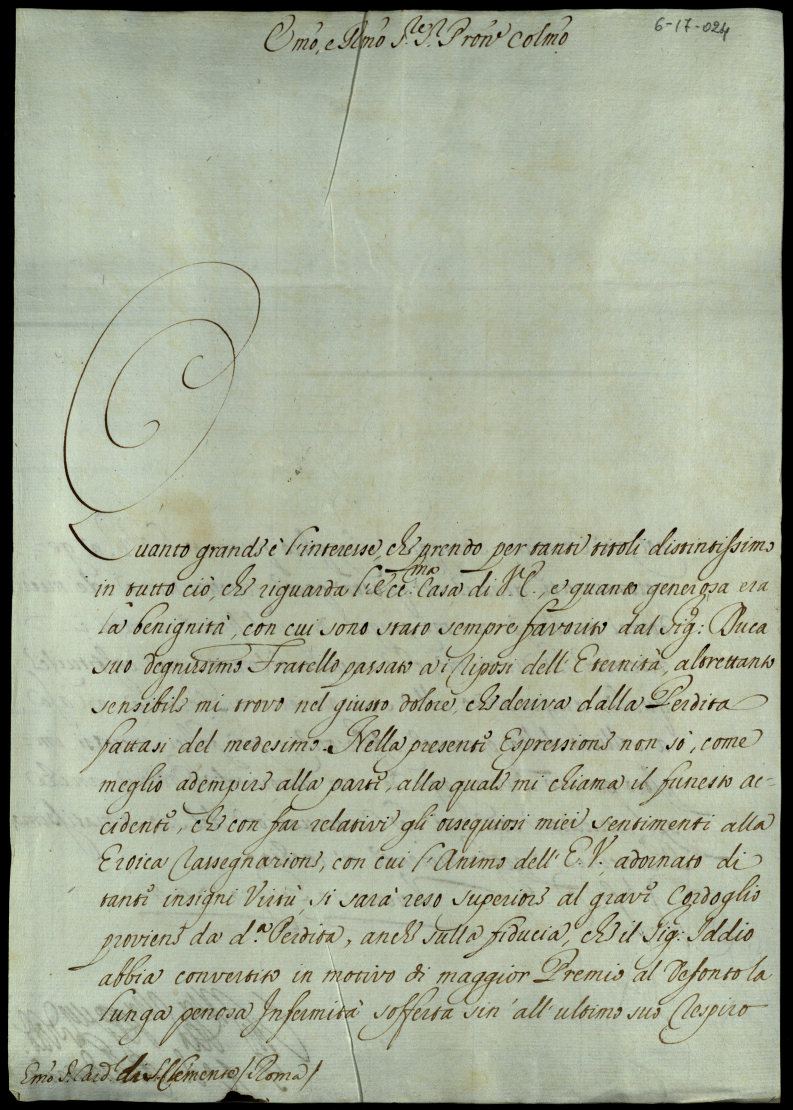 6-17-024
Emo, e Rmo Sre Sr Pron Colmo
Quanto grande è l'interesse, che prendo per tanti titoli distintissimo
in tutto ciò, che riguarda l'Ecc:ma Casa di V.E., e quanto generosa era
la benignità, con cui sono stato sempre favorito dal Sig: Duca
suo degnissimo Fratello passato a i Riposi dell'Eternità, altrettanto
sensibile mi trovo nel giusto dolore, che deriva dalla Perdita
fattasi del medesimo. Nella presente Espressione non sò, come
meglio adempire alla parte, alla quale mi chiama il funesto ac=
cidente, che con far relativi gli ossequiosi miei sentimenti alla
Eroica Rassegnazione, con cui l'Animo dell'E.V. adornato di
tante insigni Virtù, si sarà reso superiore al grave Cordoglio
proviene da d.a Perdita, anche sulla fiducia, che il Sig: Iddio
abbia convertito in motivo di maggior Premio al Defonto la
lunga penosa Infermità sofferta sin'all'ultimo suo Respiro
Emo S. Card. di S. Clemente /Roma/